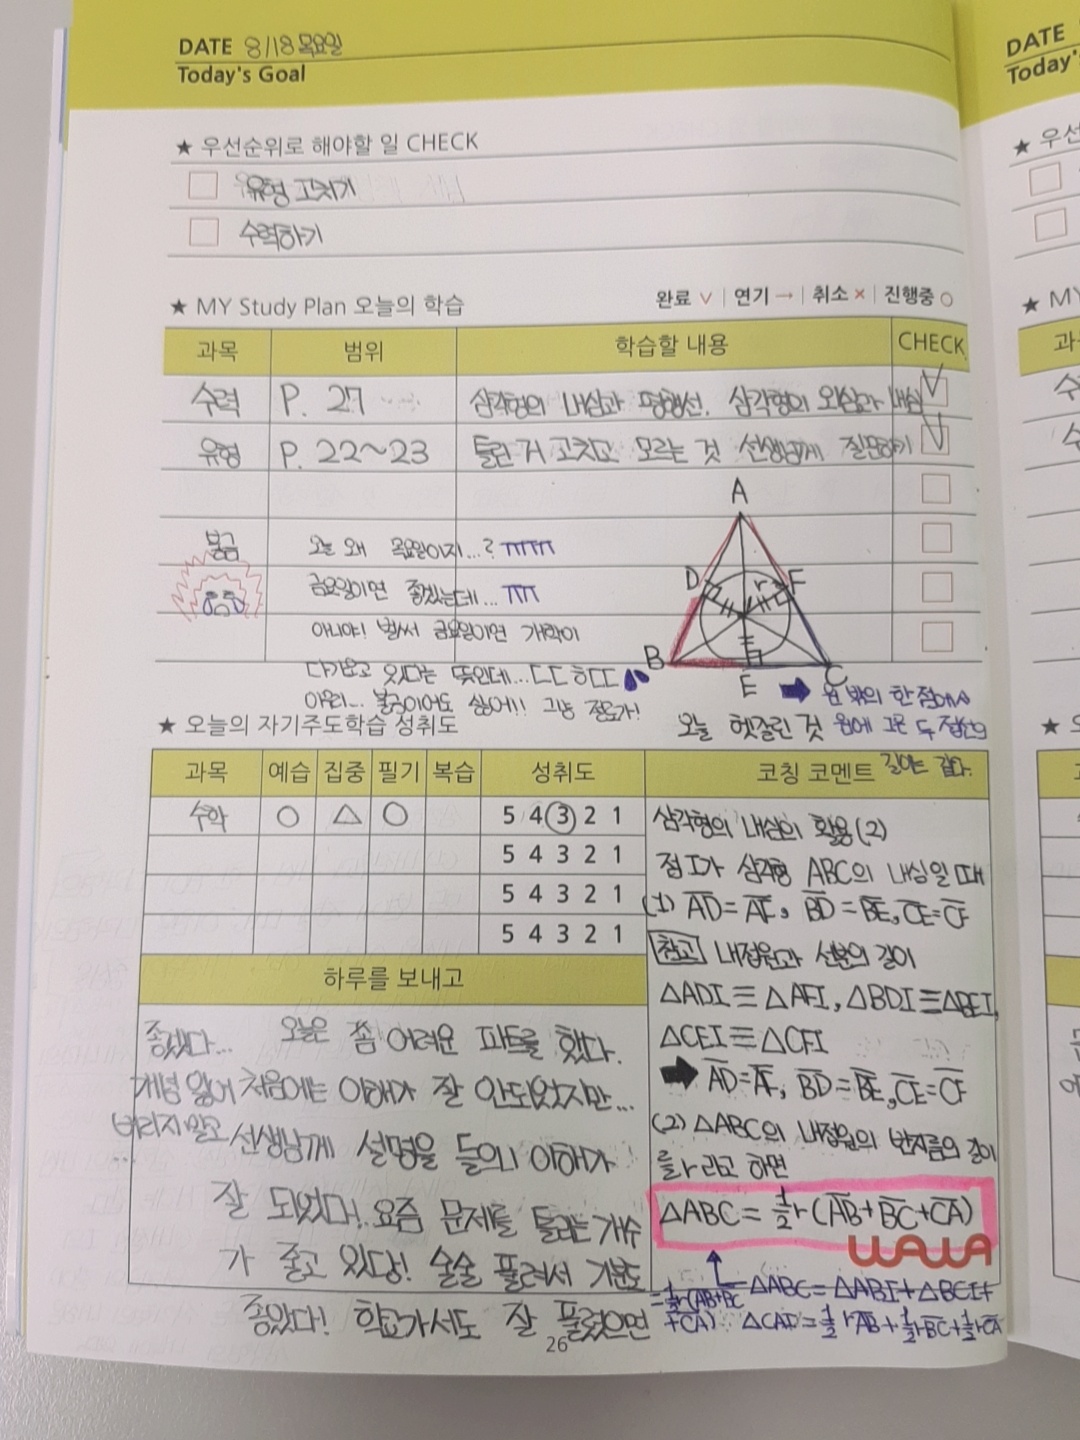 DATE 8/18 목요일
Today's Goal
★ 우선순위로 해야할 일 CHECK
유형 고치기
수력하기
★ MY Study Plan 오늘의 학습
완료 ∨ | 연기 → | 취소 × | 진행중 ○
과목 범위 학습할 내용 CHECK
수력 P. 27 삼각형의 내심과 평행선. 삼각형의 외심과 내심 ∨
유형 P. 22~23 틀린 거 고치고 모르는 것 선생님께 질문하기 ∨
불금 오늘 왜 목요일이지...? ㅠㅠㅠ
금요일이면 좋겠는데... ㅠㅠ
아니야! 벌써 금요일이면 개학이
다가오고 있다는 뜻인데...ㄷㄷㅎㄷㄷ
불금이어도 싫어!! 그냥
A
D
F
r
B
E
C
➡ 원 밖의 한 점에서
원에 그은 두 접선의
길이는 같다.
오늘 헷갈린 것
★ 오늘의 자기주도학습 성취도
과목 예습 집중 필기 복습 성취도 코칭 코멘트
수학 ○ △ ○ 5 4 3 2 1
5 4 3 2 1
5 4 3 2 1
5 4 3 2 1
삼각형의 내심의 활용(2)
점 I가 삼각형 ABC의 내심일 때
(1) A̅D̅=A̅F̅, B̅D̅=B̅E̅, C̅E̅=C̅F̅
참고 내접원과 선분의 길이
△ADI≡△AFI, △BDI≡△BEI,
△CEI≡△CFI
➡ A̅D̅=A̅F̅, B̅D̅=B̅E̅, C̅E̅=C̅F̅
(2) △ABC의 내접원의 반지름의 길이
를 r라고 하면
△ABC=½r(A̅B̅+B̅C̅+C̅A̅)
WAWA
△ABC=△ABI+△BCI+
△CAD=½rA̅B̅+½rB̅C̅+½rC̅A̅
=½r(A̅B̅+B̅C̅
+C̅A̅)
하루를 보내고
오늘은 좀 어려운 파트를 했다.
처음에는 이해가 잘 안되었지만...
선생님께 설명을 들으니 이해가
잘 되었다! 요즘 문제를 틀리는 개수
가 줄고 있당! 술술 풀려서 기분도
좋았다! 학교가서도 잘 풀렸으면
좋겠다...
개념 잃어
버리지 말고
...
26
DATE
Today's
★ 우선
★ MY